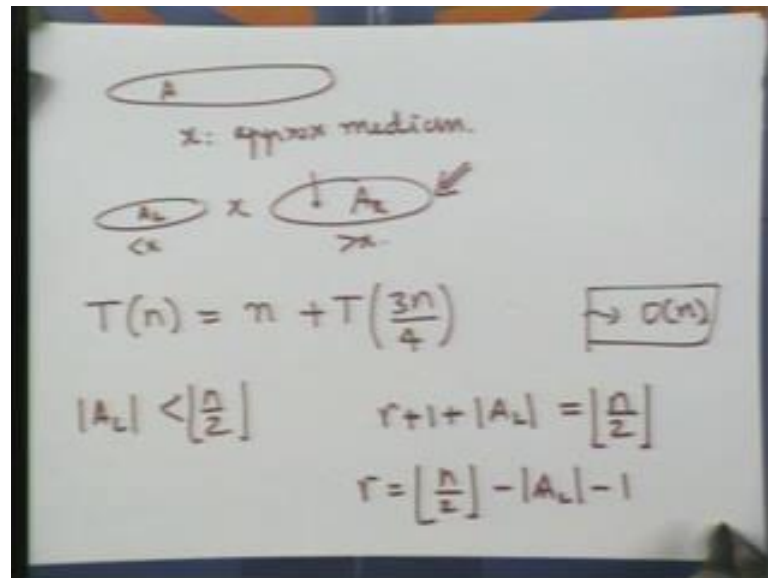 A
x: approx median.
A_L x A_R
<x >x
T(n) = n + T(3n/4) → O(n)
|A_L| < ⌊n/2⌋ r+1+|A_L| = ⌊n/2⌋
r = ⌊n/2⌋ - |A_L| - 1